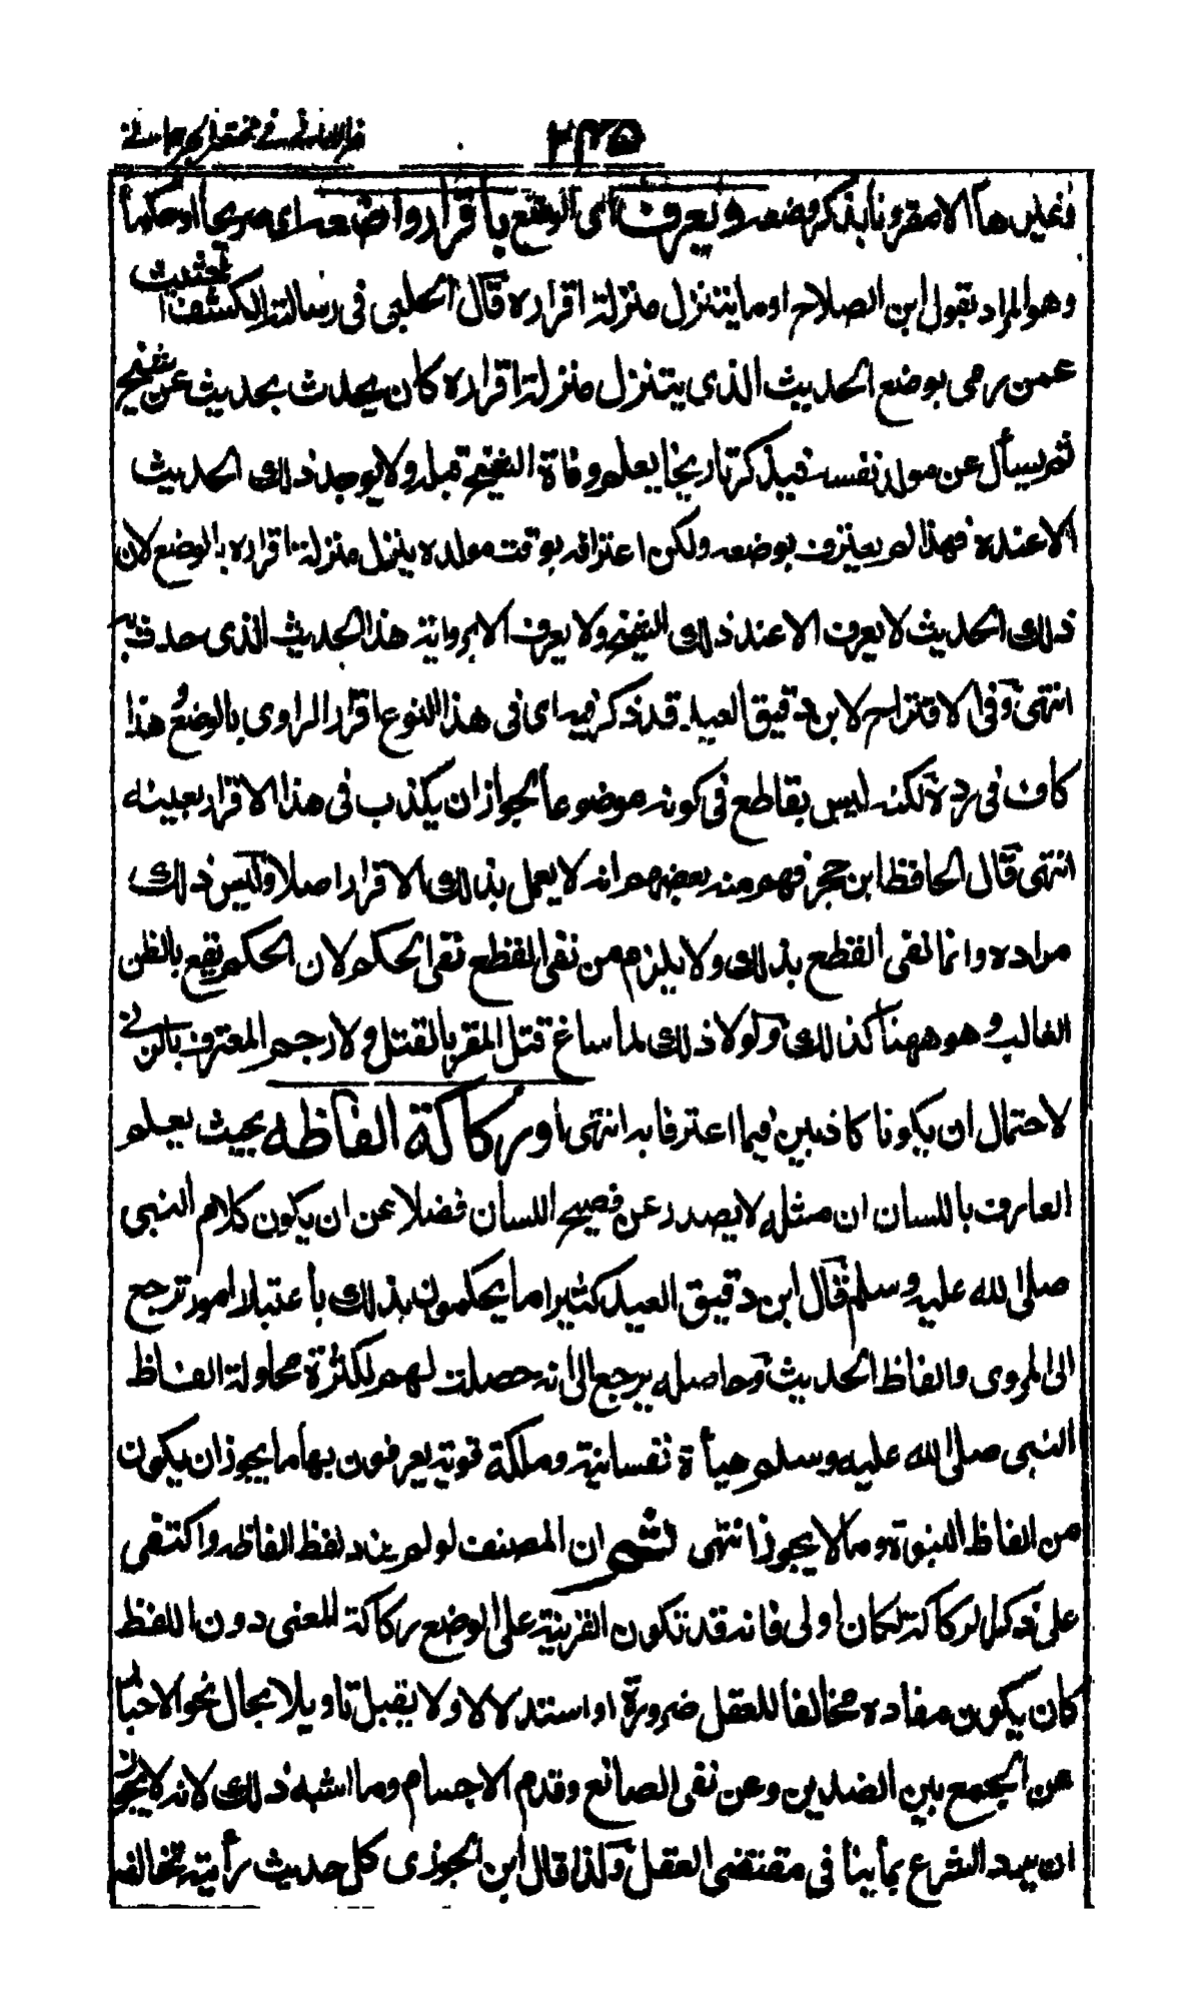 ظفر الاماني في مختصر الجرجاني
٣٢٥
وغيرها الا مقرونا بذكر وضعه ويعرف اى الوضع باقرار واضعه اى صريحا او حكما
وهو المراد بقول ابن الصلاح او ما يتنزل منزلة اقراره قال الحلبي فى رسالة الكشف الحثيث
عمن رمى بوضع الحديث الذى يتنزل منزلة اقراره كان يحدث بحديث عن شيخ
ثم يسأل عن مولد نفسه فيذكر تاريخا يعلم وفاة الشيخ قبله ولا يوجد ذلك الحديث
الا عنده فهذا لم يعترف بوضعه ولكن اعترافه بوقت مولده ينزل منزلة اقراره بالوضع لان
ذلك الحديث لا يعرف الا عند ذلك الشيخ ولا يعرف الا برواية هذا الحديث الذى حدث به
انتهى وفى الاقتراح لابن دقيق العيد قد ذكر فيه اى فى هذا النوع اقرار الراوى بالوضع هذا
كاف فى رده لكنه ليس بقاطع فى كونه موضوعا لجواز ان يكذب فى هذا الاقرار بعينه
انتهى قال الحافظ ابن حجر فهم منه بعضهم انه لا يعمل بذلك الاقرار اصلا وليس ذلك
مراده وانما نفى القطع بذلك ولا يلزم من نفى القطع نفى الحكم لان الحكم يقع بالظن
الغالب وهو ههنا كذلك ولولا ذلك لما ساغ قتل المقر بالقتل ولا رجم المعترف بالزنى
لاحتمال ان يكونا كاذبين فيما اعترفا به انتهى او ركاكة الفاظه بحيث يعلم
العارف باللسان ان مثله لا يصدر عن فصيح اللسان فضلا عن ان يكون كلام النبى
صلى الله عليه وسلم قال ابن دقيق العيد كثيرا ما يحكمون بذلك باعتبار امور ترجع
الى المروى والفاظ الحديث وحاصله يرجع الى انه حصلت لهم لكثرة محاولة الفاظ
النبى صلى الله عليه وسلم هيأة نفسانية وملكة قوية يعرفون بها ما يجوز ان يكون
من الفاظ النبوة وما لا يجوز انتهى ثم ان المصنف لو لم يزد لفظ الفاظه واكتفى
على ذكر الركاكة لكان اولى فانه قد تكون القرينة على الوضع ركاكة المعنى دون اللفظ
كان يكون مفاده مخالفا للعقل ضرورة او استدلالا ولا يقبل تاويلا بحال نحو الاخبار
عن الجمع بين الضدين وعن نفى الصانع وقدم الاجسام وما اشبه ذلك لانه لا يجوز
ان يرد الشرع بما ينافى مقتضى العقل ولذا قال ابن الجوزى كل حديث رأيته تخالفه